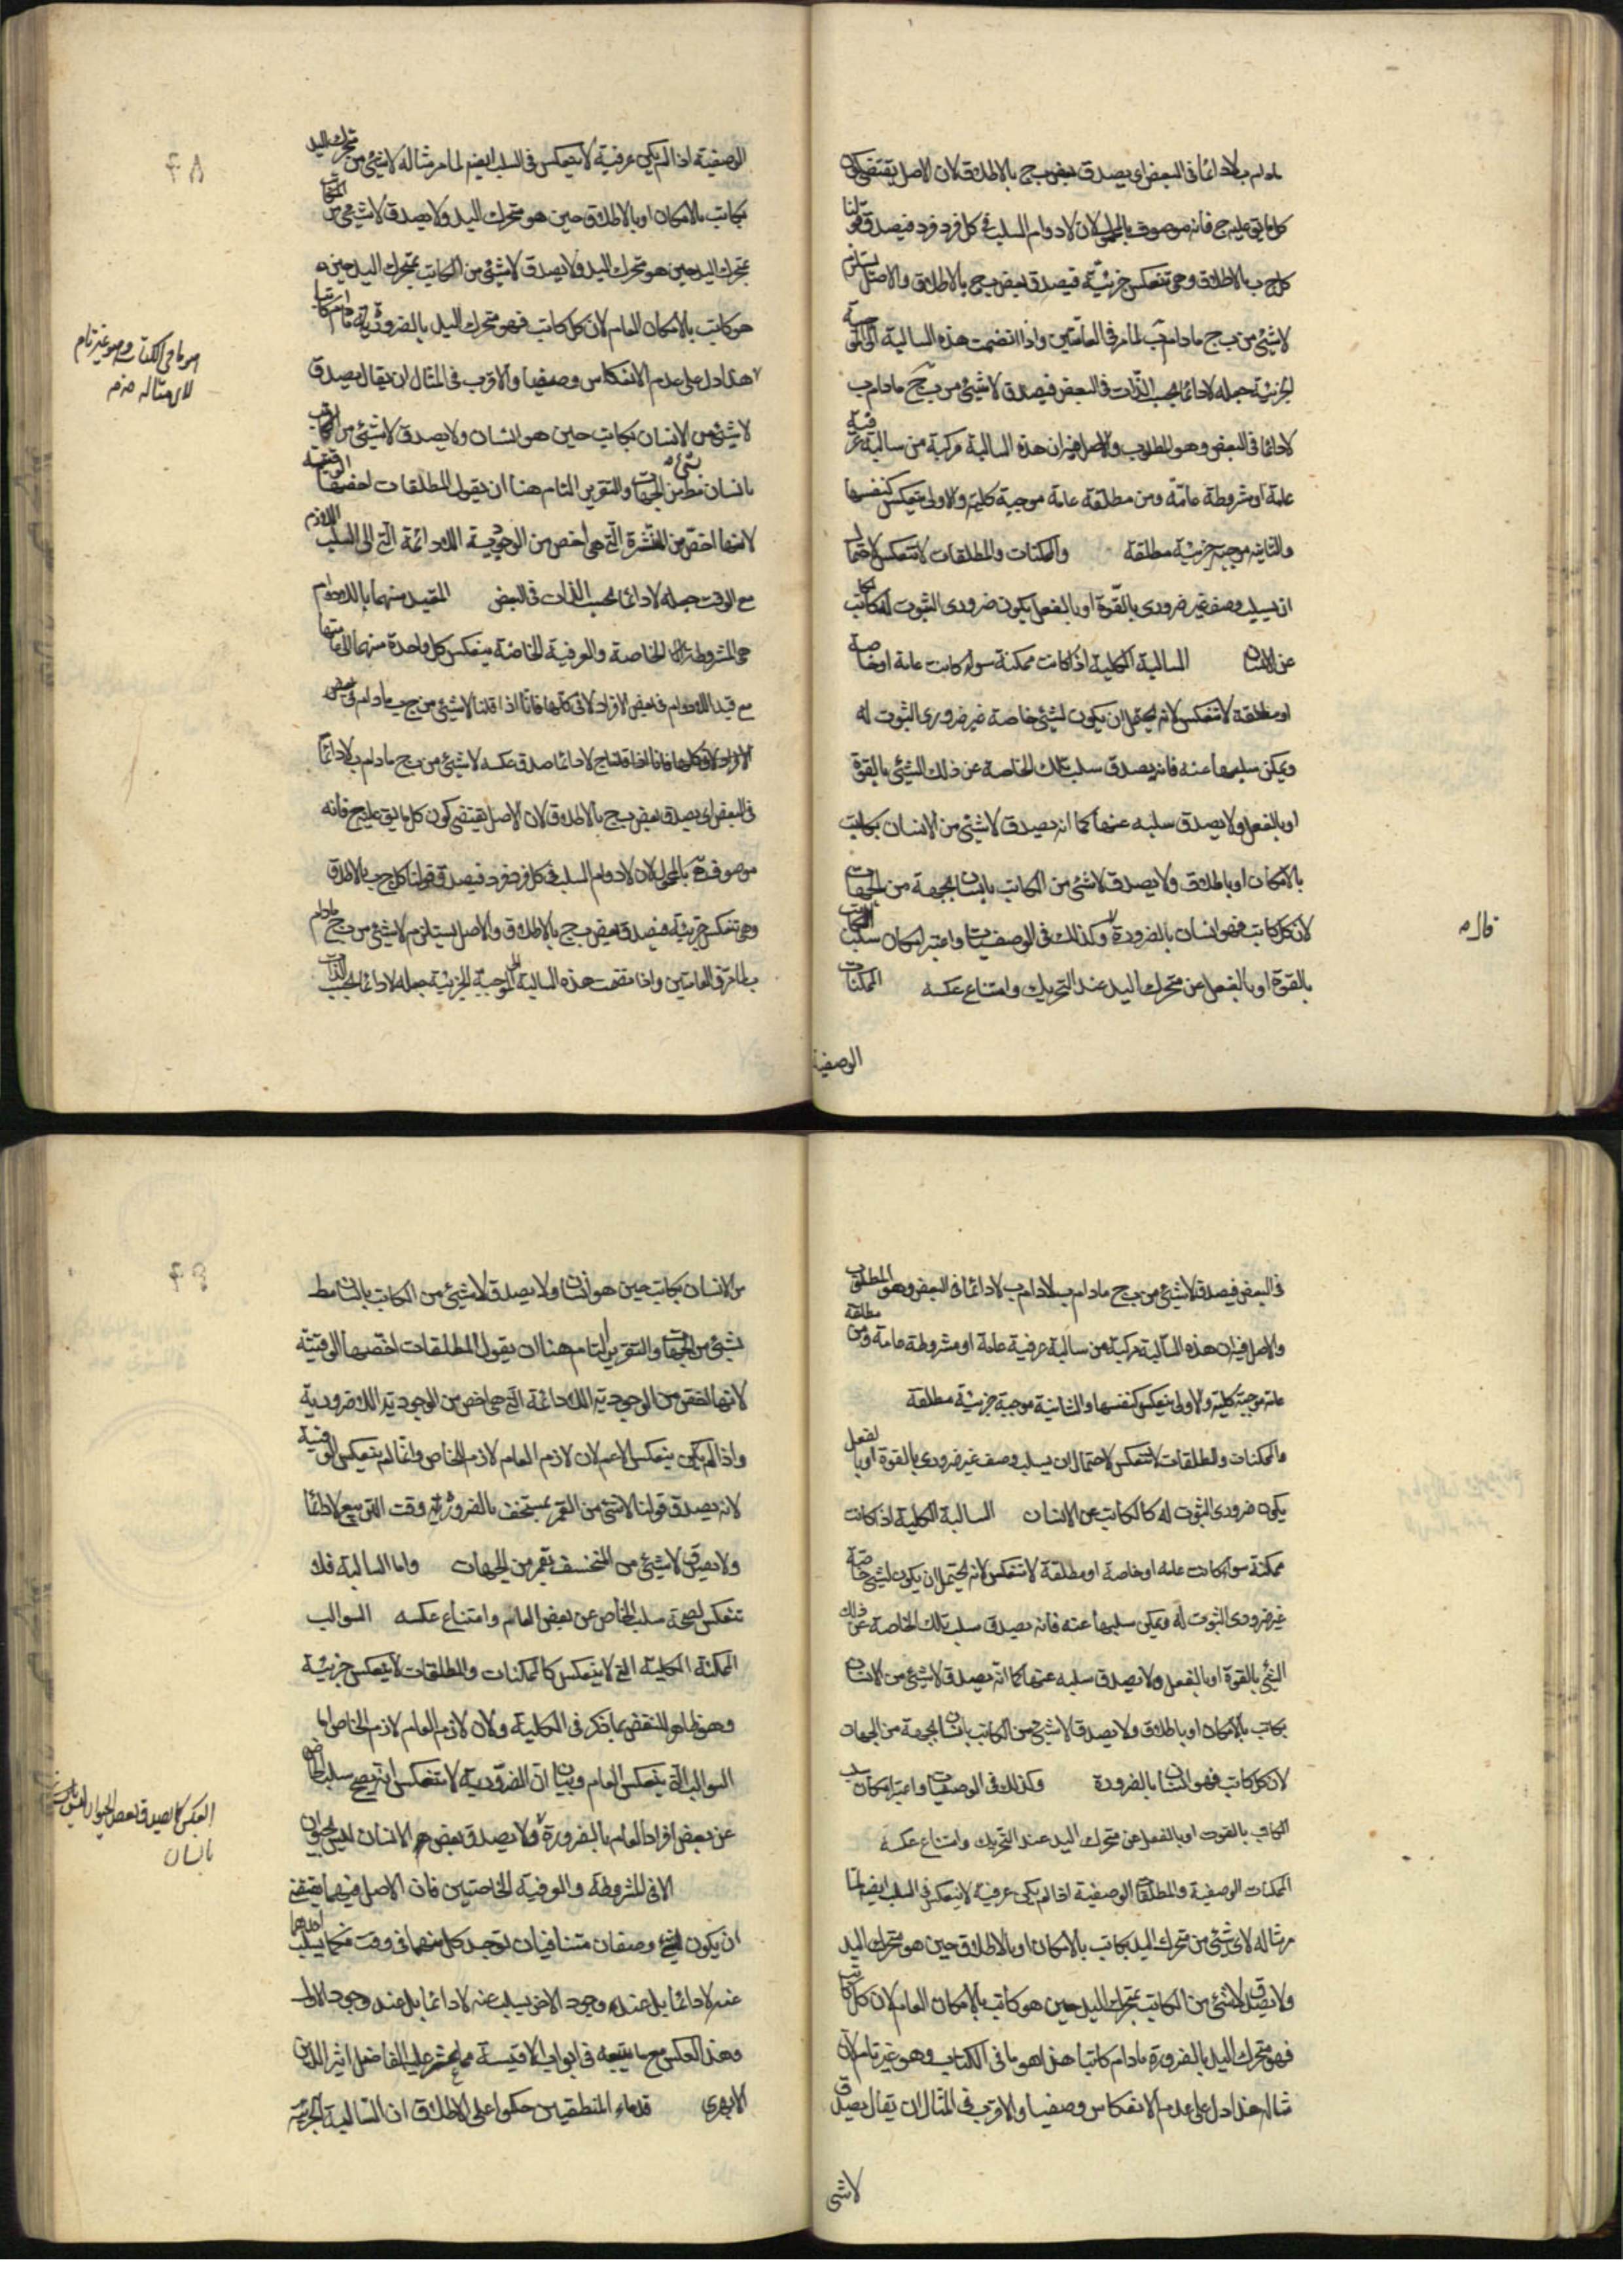 مادام ب لادائما في البعض اي يصدق بعض ب ج بالاطلاق لان الاصل يقتضي كون
كل ما يق عليه ج فانه موصوف بالمحمول لان لادوام السلب في كل فرد فرد فيصدق قولنا
كل ج ب بالاطلاق وهي تنعكس جزئية فيصدق بعض ب ج بالاطلاق والاصل يستلزم
لاشئ من ب ج مادام ب لما مر في العامتين واذا انضمت هذه السالبة الى الموجبة
الجزئية جعله لادائما بحسب الذات في البعض فيصدق لاشئ من ب ج مادام ب
لادائما في البعض وهو المطلوب والاصل فيه ان هذه السالبة مركبة من سالبة عرفية
عامة او مشروطة عامة ومن مطلقة عامة موجبة كلية والاولى ينعكس كنفسها
والثانية موجبة جزئية مطلقة والممكنات والمطلقات لاتنعكس لاحتمال
ان يسلب وصف غير ضروري بالقوة او بالفعل يكون ضروري الثبوت له كالكاتب
عن الانسان السالبة الكلية اذا كانت ممكنة سواء كانت عامة او خاصة
او مطلقة لاتنعكس لانه يحتمل ان يكون لشئ خاصة غير ضروري الثبوت له
ويمكن سلبها عنه فانه يصدق سلب تلك الخاصة عن ذلك الشئ بالقوة
او بالفعل ولا يصدق سلبه عنها كما انه يصدق لاشئ من الانسان بكاتب
بالامكان او باطلاق ولا يصدق لاشئ من الكاتب بانسان بجهة من الجهات
لان كل كاتب فهو انسان بالضرورة وكذلك في الوصفيات واعتبر امكان سلب الكاتب
بالقوة او بالفعل عن متحرك اليد عند التحريك وامتناع عكسه الممكنات
الوصفية
قاله
الوصفية اذا لم يكن عرفية لاينعكس في السلب ايضم لما مر مثاله لاشئ من متحرك اليد
بكاتب بالامكان او بالاطلاق حين هو متحرك اليد ولا يصدق لاشئ من الكاتب
بمتحرك اليد حين هو متحرك اليد ولا يصدق لاشئ من الكاتب بمتحرك اليد حين
هو كاتب بالامكان العام لان كل كاتب فهو متحرك اليد بالضرورة مادام كاتبا
هذا دل على عدم الانعكاس وصفيا والاقرب في المثال ان يقال يصدق
لاشئ من الانسان بكاتب حين هو انسان ولا يصدق لاشئ من الكاتب
بانسان مط بشئ من الجهات والتقرير التام هنا ان يقول المطلقات اخصها الوقتية
لانها اخص من المنتشرة التي هي اخص من الوجودية اللادائمة التي الى السلب اللازم
مع الوقت جعله لادائما بحسب الذات في البعض المقيد منهما باللادوام
هي المشروطة الخاصة والعرفية الخاصة ينعكس كل واحدة منهما الى عامتها
مع قيد اللادوام في بعض الافراد لا في كلها فانا اذا قلنا لاشئ من ج ب مادام في بعض
الافراد لا في كلها فانا اذا قلنا ج لادائما صدق عكسه لاشئ من ب ج مادام ب لادائما
في البعض اي يصدق بعض ب ج بالاطلاق لان الاصل يقتضي كون كل ما يق عليه ج فانه
موصوف بالمحمول لان لادوام السلب في كل فرد فرد فيصدق قولنا كل ج ب بالاطلاق
وهي تنعكس جزئية فيصدق بعض ب ج بالاطلاق والاصل يستلزم لاشئ من ب ج مادام
ب لما مر في العامتين واذا انضمت هذه السالبة الى الموجبة الجزئية جعله لادائما بحسب الذات
هو ما في الكتاب وهو غير تام
لان مثاله
في البعض فيصدق لاشئ من ب ج مادام ب لادام ب لادائما في البعض وهو المطلوب
والاصل فيه ان هذه السالبة مركبة من سالبة عرفية عامة او مشروطة عامة ومن مطلقة
عامة موجبة كلية والاولى ينعكس كنفسها والثانية موجبة جزئية مطلقة
والممكنات والمطلقات لاتنعكس لاحتمال ان يسلب وصف غير ضروري بالقوة او بالفعل
يكون ضروري الثبوت له كالكاتب عن الانسان السالبة الكلية اذا كانت
ممكنة سواء كانت عامه او خاصة او مطلقة لاتنعكس لانه يحتمل ان يكون لشئ خاصة
غير ضروري الثبوت له ويمكن سلبها عنه فانه يصدق سلب تلك الخاصة عن ذلك
الشئ بالقوة او بالفعل ولا يصدق سلبه عنها كما انه يصدق لاشئ من الانسان
بكاتب بالامكان او باطلاق ولا يصدق لاشئ من الكاتب بانسان بجهة من الجهات
لان كل كاتب فهو انسان بالضرورة وكذلك في الوصفيات واعتبر امكان سلب
الكاتب بالقوت او بالفعل عن متحرك اليد عند التحريك وامتناع عكسه
الممكنات الوصفية والمطلقات الوصفية اذا لم يكن عرفية لاينعكس في السلب ايضم لما
مر مثاله لاشئ من متحرك اليد بكاتب بالامكان او بالاطلاق حين هو متحرك اليد
ولا يصدق لاشئ من الكاتب بمتحرك اليد حين هو كاتب بالامكان العام لان كل كاتب
فهو متحرك اليد بالضرورة مادام كاتبا هذا هو ما في الكتاب وهو غير تام لان
مثاله هذا دل على عدم الانعكاس وصفيا والاقرب في المثال ان يقال يصدق
لاشئ
من الانسان بكاتب حين هو انسان ولا يصدق لاشئ من الكاتب بانسان مط
بشئ من الجهات والتقرير التام هنا ان يقول المطلقات اخصها الوقتية
لانها اخص من الوجودية اللادائمة التي هي اخص من الوجودية اللاضرورية
واذا لم يكن ينعكس الاعم لان لازم العام لازم الخاص وانما لم ينعكس الوقتية
لانه يصدق قولنا لاشئ من القمر بمنخسف بالضرورة وقت التربيع لادائما
ولا يصدق لاشئ من المنخسف بقمر من الجهات واما السالبة فلا
تنعكس لصحة سلب الخاص عن بعض العام وامتناع عكسه السوالب
الممكنة الكلية التي لاينعكس كالممكنات والمطلقات لاينعكس جزئية
وهو ظاهر للنقض بما ذكر في الكلية ولان لازم العام لازم الخاص اما
السوالب التي ينعكس العام وبيان ان الضرورية لاتنعكس انه يصح سلب الخاص
عن بعض افراد العام بالضرورة ولا يصدق بعض الانسان ليس بحيوان
الا في المشروطة والعرفية الخاصتين فان الاصل فيهما يقتضي
ان يكون لشئ وصفان متنافيان لوجد كل منهما في وقت فكما يسلب احدهما
عنه لادائما بل عند وجود الاخر يسلب عنه لادائما بل عند وجود الاول
وهذا العكس مع ما يتبعه في ابواب الاقيسة مما عثر عليه الفاضل اثير الدين
الابهري قدماء المنطقيين حكموا على الاطلاق ان السالبة الجزئية
العكس كما يصدق بعض الحيوان ليس
بانسان